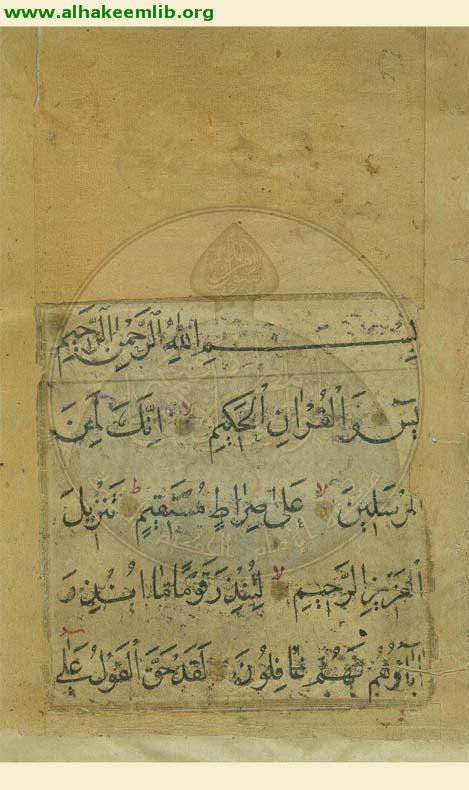 www.alhakeemlib.org
بِسْمِ اللهِ الرَّحْمٰنِ الرَّحِيمِ
يس وَالْقُرْاٰنِ الْحَكِيمِ لا اِنَّكَ لَمِنَ
الْمُرْسَلِينَ لا عَلٰى صِرَاطٍ مُسْتَقِيمٍ ط تَنْزِيلَ
الْعَزِيزِ الرَّحِيمِ لا لِتُنْذِرَ قَوْمًا مَا اُنْذِرَ
اٰبَاؤُهُمْ فَهُمْ غَافِلُونَ لَقَدْ حَقَّ الْقَوْلُ عَلٰى